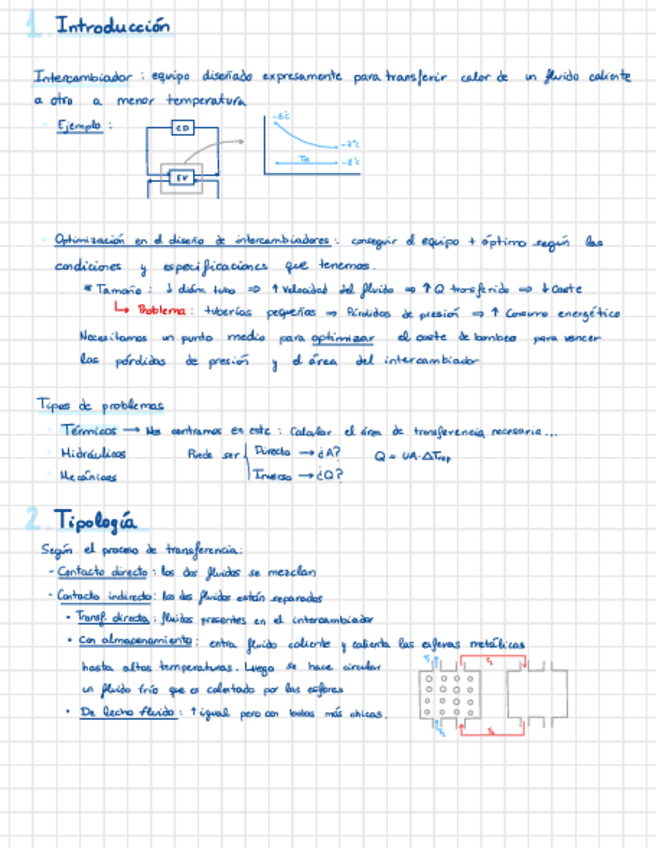 1. Introducción
Intercambiador : equipo diseñado expresamente para transferir calor de un fluido caliente
a otro a menor temperatura
Ejemplo :
CD
EV
-6°C
-7°C
-8°C
Optimización en el diseño de intercambiadores : conseguir el equipo + óptimo según las
condiciones y especificaciones que tenemos.
* Tamaño : ↓ diám. tubo ⇒ ↑ velocidad del fluido ⇒ ↑ Q transferido ⇒ ↓ Coste
↳ Problema : tuberías pequeñas ⇒ Pérdidas de presión ⇒ ↑ Consumo energético
Necesitamos un punto medio para optimizar el coste de bombeo para vencer
las pérdidas de presión y el área del intercambiador
Tipos de problemas
Térmicos → Nos centramos en este : Calcular el área de transferencia necesaria...
Hidráulicos Puede ser Directo → ¿A? Q = UA·ΔT
Mecánicos Inverso → ¿Q?
2. Tipología
Según el proceso de transferencia:
- Contacto directo : los dos fluidos se mezclan
- Contacto indirecto : los dos fluidos están separados
• Transf. directa : fluidos presentes en el intercambiador
• Con almacenamiento : entra fluido caliente y calienta las esferas metálicas
hasta altas temperaturas. Luego se hace circular
un fluido frío que es calentado por las esferas
• De lecho fluido : ↑ igual pero con bolas más chicas.